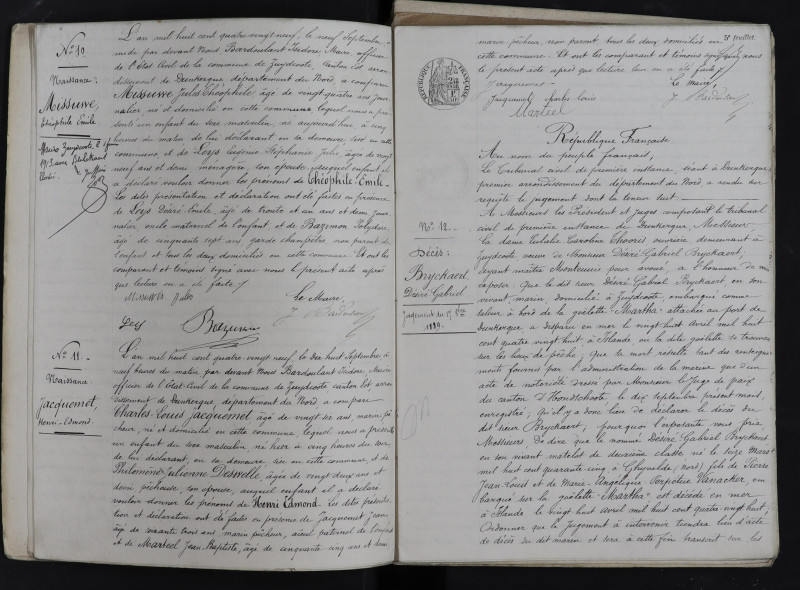 N° 10
Naissance :
Missuwe,
Théophile Emile
L'an mil huit cent quatre vingt neuf, le neuf Septembre,
midi par devant Nous Bardoulant Isidore, Maire, officier
de l'état Civil de la commune de Zuydcoote, canton Est arron
dissement de Dunkerque département du Nord a comparu
Missuwe Jules Théophile âgé de vingt-quatre ans jour
nalier né et domicilié en cette commune lequel nous a pré
senté un enfant du sexe masculin, né aujourd'hui à cinq
heures du matin de lui déclarant en sa demeure, sise en cette
commune, et de Loys Eugénie Stéphanie Julie, âgée de vingt
neuf ans et demi ménagère, son épouse, auquel enfant il
a déclaré vouloir donner les prénoms de Théophile-Emile.
Les dites présentation et déclaration ont été faites en présence
de Loys Désiré Emile, âgé de trente et un ans et demi jour
nalier oncle maternel de l'enfant, et de
âgé de cinquante sept ans garde champêtre, non parent de
l'enfant et tous les deux domiciliés en cette commune. Et ont les
comparant et témoins signé avec nous le présent acte après
que lecture en a été faite /
Missuwe Jules
Le Maire,
Loys
N° 11.
Naissance
Jacquemet,
Henri-Edmond.
L'an mil huit cent quatre vingt neuf le dix huit Septembre, à
neuf heures du matin, par devant Nous Bardoulant Isidore, Maire
officier de l'état-Civil de la commune de Zuydcoote canton Est arron
dissement de Dunkerque, département du Nord a comparu
Charles Louis Jacquemet âgé de vingt six ans, marin pê
cheur, né et domicilié en cette commune, lequel nous a présenté
un enfant du sexe masculin, né hier à cinq heures du soir
de lui déclarant, en sa demeure sise en cette commune, et de
Philomène Julienne Deswelle, âgée de vingt deux ans et
demi pêcheuse, son épouse, auquel enfant il a déclaré
vouloir donner les prénoms de Henri Edmond. Les dites présenta
tion et déclaration ont été faites en présence de Jacquemet Jean
âgé de soixante trois ans, marin pêcheur, aïeul paternel de l'enfant
et de Marteel Jean Baptiste, âgé de cinquante cinq ans et demi
3e feuillet.
marin pêcheur, non parent, tous les deux domiciliés en
cette commune. Et ont les comparant et témoins signé avec nous
le présent acte après que lecture leur en a été faite /
Jacquemet
Le Maire,
Jacquemet Charles Louis
Marteel
RÉPUBLIQUE FRANÇAISE
République Française
Au nom du peuple français,
Le Tribunal civil de première instance, séant à Dunkerque,
premier arrondissement du département du Nord a rendu sur
requête le jugement dont la teneur suit.
N° 12.
Décès :
Bryckaert
Désiré Gabriel
1889.
A Messieurs les Président et juges composant le tribunal
civil de première instance de Dunkerque, Messieurs,
La dame Eulalie Caroline Chooris ouvrière demeurant à
Zuydcoote, veuve de Monsieur Désiré Gabriel Bryckaert,
ayant maître Montreuus pour avoué, a l'honneur de vous
exposer : Que le dit sieur Désiré Gabriel Bryckaert, en son
vivant marin, domicilié à Zuydcoote, embarqué comme
à bord de la goëlette "Martha" attachée au port de
Dunkerque, a disparu en mer le vingt huit avril mil huit
cent quatre vingt huit, à Islande, ou la dite goëlette se trouvait
sur les lieux de pêche ; Que la mort résulte tant des renseigne
ments fournis par l'administration de la marine que d'un
acte de notoriété dressé par Monsieur le Juge de paix
du canton d'Hondschoote, le dix septembre présent mois,
enregistré ; Qu'il y a donc lieu de déclarer le décès du
dit sieur Bryckaert ; pourquoi l'exposante vous prie
Messieurs, De dire que le nommé Désiré Gabriel Bryckaert
en son vivant matelot de deuxième classe né le seize Mars
mil huit cent quarante cinq à Ghyvelde (Nord) fils de Pierre
Jean Louis et de Marie Angélique Perpétue Vanacker, em
barqué sur la goëlette "Martha" est décédé en mer
à Islande le vingt huit avril mil huit cent quatre-vingt huit ;
Ordonner que le jugement à intervenir tiendra lieu d'acte
de décès du dit marin et sera à cette fin transcrit sur les